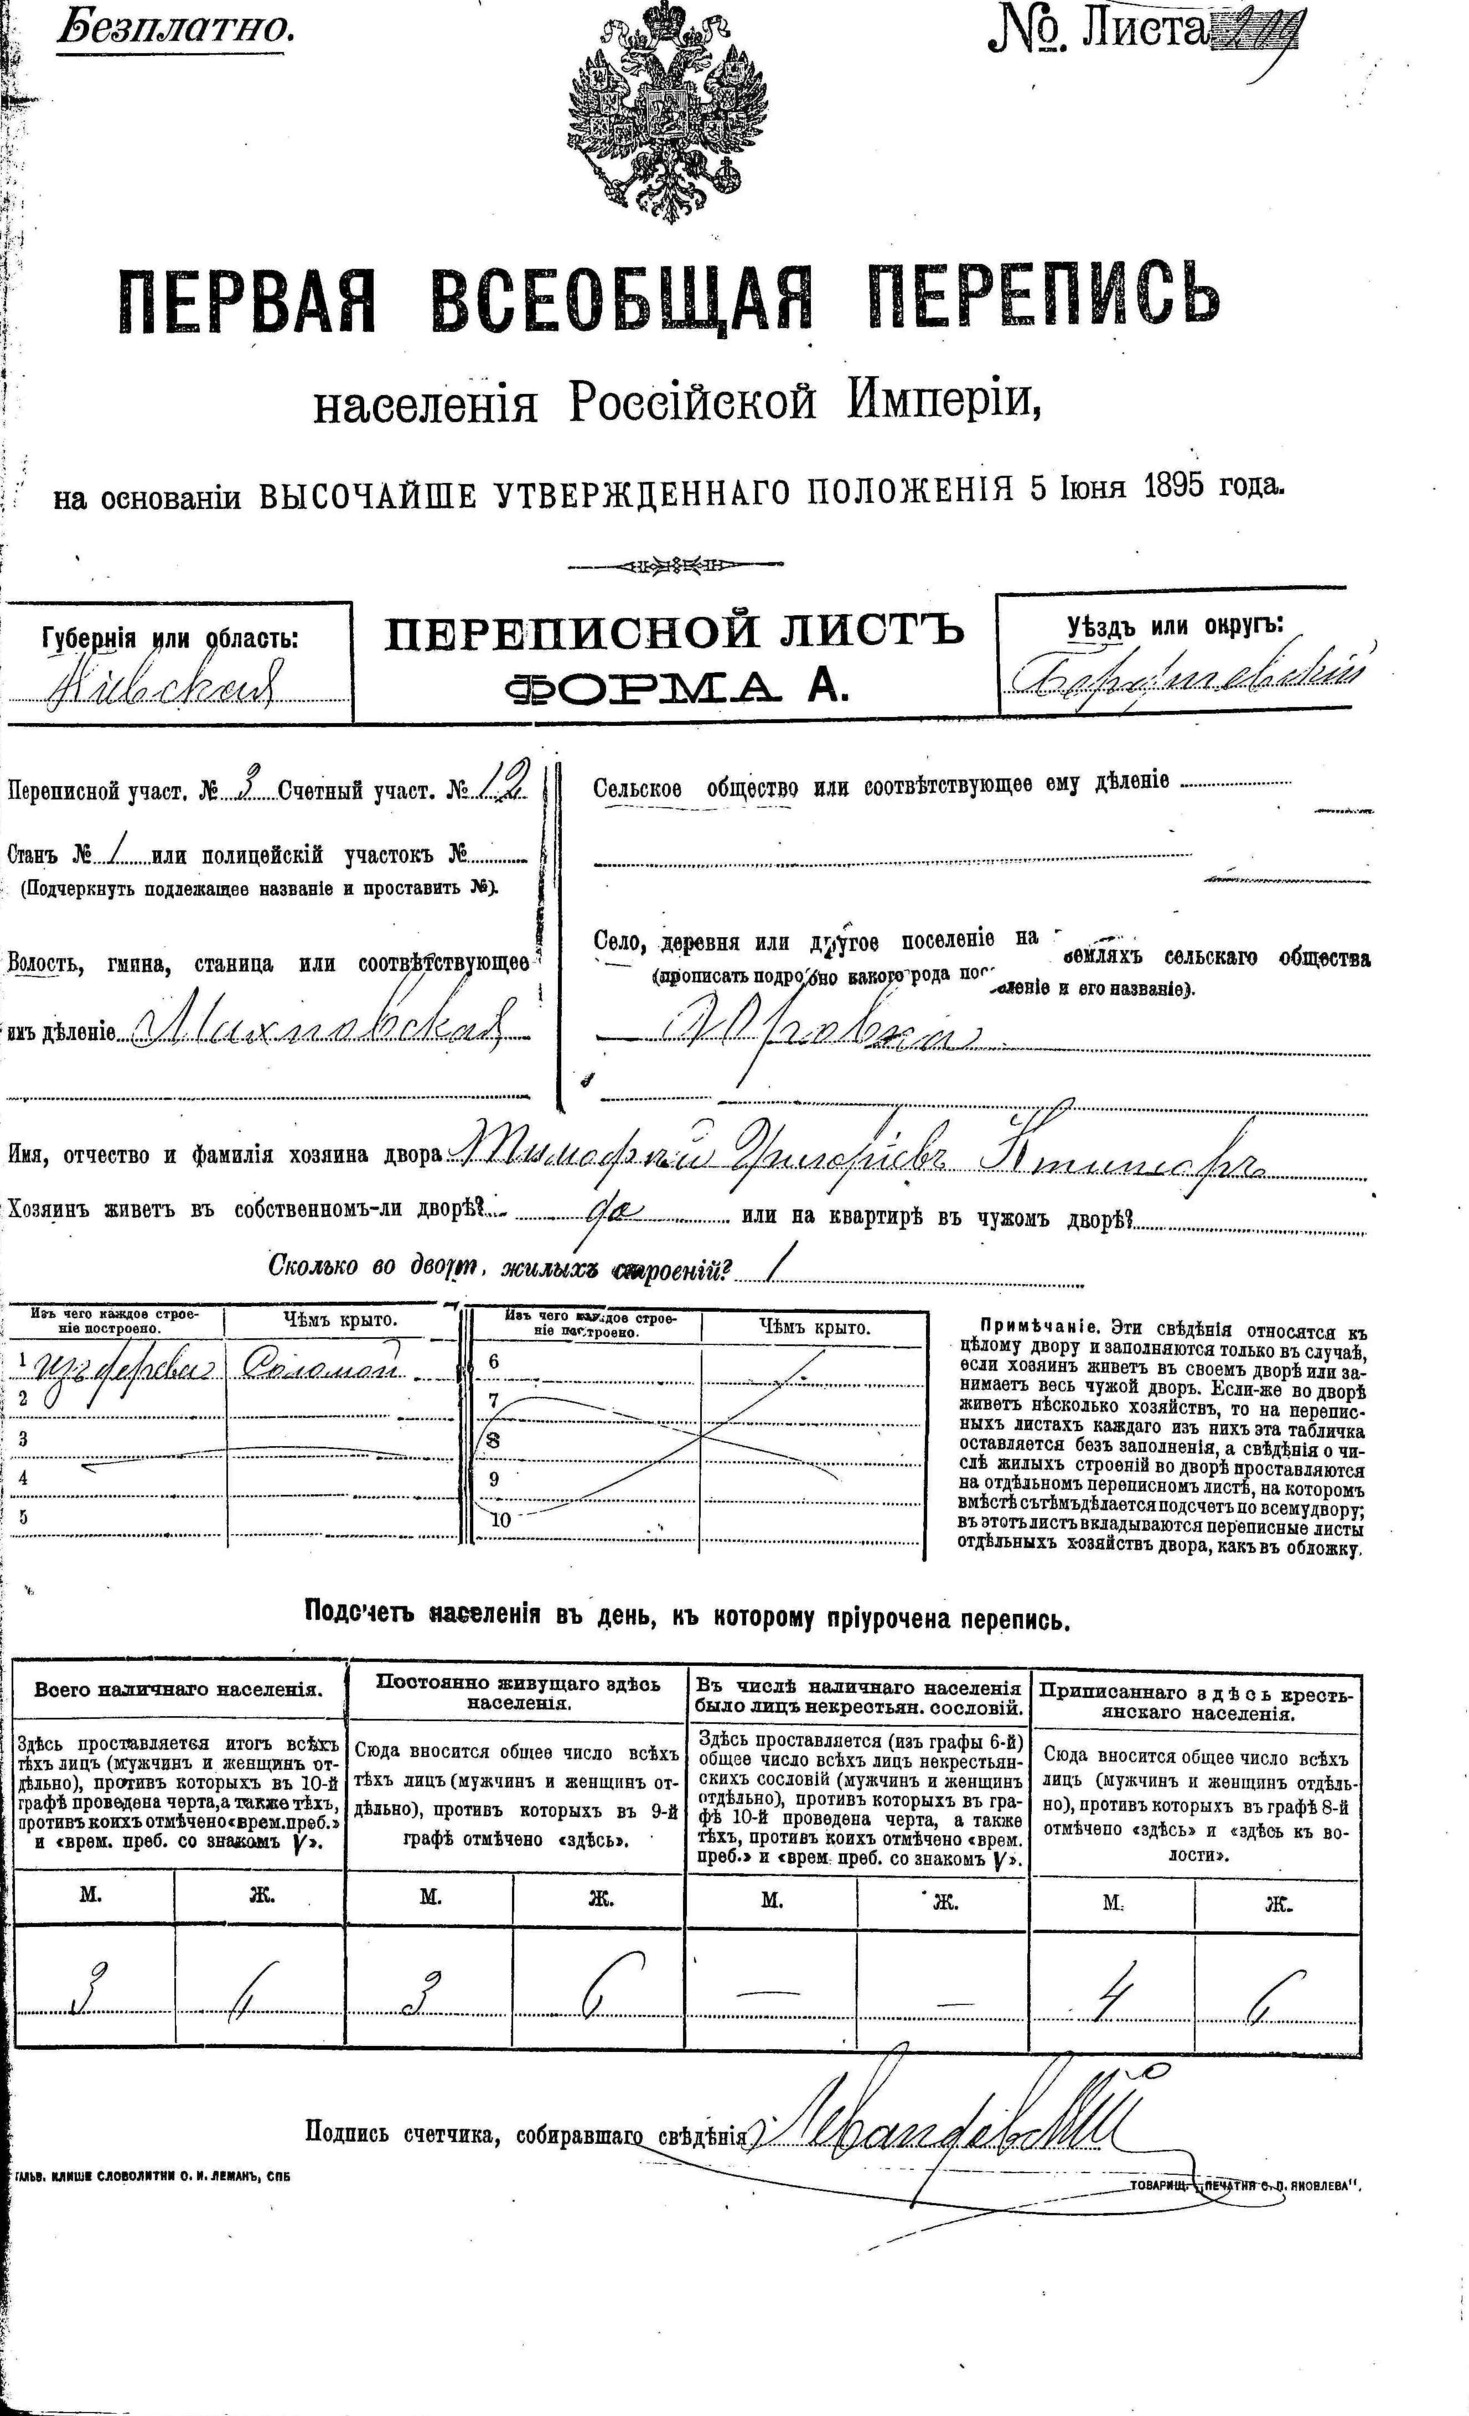 Безплатно.
№. Листа 209
ПЕРВАЯ ВСЕОБЩАЯ ПЕРЕПИСЬ
населенія Россійской Имперіи,
на основаніи ВЫСОЧАЙШЕ УТВЕРЖДЕННАГО ПОЛОЖЕНІЯ 5 Іюня 1895 года.
Губернія или область:
Кіевская
ПЕРЕПИСНОЙ ЛИСТЪ
ФОРМА А.
Уѣздъ или округъ:
Бердичевскій
Переписной участ. № 3 Счетный участ. № 12
Станъ № 1 или полицейскій участокъ №
(Подчеркнуть подлежащее названіе и проставить №).
Волость, гмина, станица или соотвѣтствующее
имъ дѣленіе Махновская
Сельское общество или соотвѣтствующее ему дѣленіе
Село, деревня или другое поселеніе на земляхъ сельскаго общества
(прописать подробно какого рода поселеніе и его названіе).
Юровка
Имя, отчество и фамилія хозяина двора Тимофей Григоріевъ
Хозяинъ живетъ въ собственномъ-ли дворѣ? да или на квартирѣ въ чужомъ дворѣ?
Сколько во дворѣ жилыхъ строеній? 1
Изъ чего каждое строе-
ніе построено.
Чѣмъ крыто.
1 изъ дерева Соломой
2
3
4
5
Изъ чего каждое строе-
ніе построено.
Чѣмъ крыто.
6
7
8
9
10
Примѣчаніе. Эти свѣдѣнія относятся къ
цѣлому двору и заполняются только въ случаѣ,
если хозяинъ живетъ въ своемъ дворѣ или за-
нимаетъ весь чужой дворъ. Если-же во дворѣ
живетъ нѣсколько хозяйствъ, то на перепис-
ныхъ листахъ каждаго изъ нихъ эта табличка
оставляется безъ заполненія, а свѣдѣнія о чи-
слѣ жилыхъ строеній во дворѣ проставляются
на отдѣльномъ переписномъ листѣ, на которомъ
вмѣстѣ съ тѣмъ дѣлается подсчетъ по всему двору;
въ этотъ листъ вкладываются переписные листы
отдѣльныхъ хозяйствъ двора, какъ въ обложку.
Подсчетъ населенія въ день, къ которому пріурочена перепись.
Всего наличнаго населенія.
Здѣсь проставляется итогъ всѣхъ
тѣхъ лицъ (мужчинъ и женщинъ от-
дѣльно), противъ которыхъ въ 10-й
графѣ проведена черта, а также тѣхъ,
противъ коихъ отмѣчено «врем. преб.»
и «врем. преб. со знакомъ V».
М. Ж.
3 6
Постоянно живущаго здѣсь
населенія.
Сюда вносится общее число всѣхъ
тѣхъ лицъ (мужчинъ и женщинъ от-
дѣльно), противъ которыхъ въ 9-й
графѣ отмѣчено «здѣсь».
М. Ж.
3 6
Въ числѣ наличнаго населенія
было лицъ некрестьян. сословій.
Здѣсь проставляется (изъ графы 6-й)
общее число всѣхъ лицъ некрестьян-
скихъ сословій (мужчинъ и женщинъ
отдѣльно), противъ которыхъ въ гра-
фѣ 10-й проведена черта, а также
тѣхъ, противъ коихъ отмѣчено «врем.
преб.» и «врем. преб. со знакомъ V».
М. Ж.
— —
Приписаннаго здѣсь кресть-
янскаго населенія.
Сюда вносится общее число всѣхъ
лицъ (мужчинъ и женщинъ отдѣль-
но), противъ которыхъ въ графѣ 8-й
отмѣчено «здѣсь» и «здѣсь къ во-
лости».
М. Ж.
4 6
Подпись счетчика, собиравшаго свѣдѣнія Левандовскій
ГАЛЬВ. КЛИШЕ СЛОВОЛИТНИ О. И. ЛЕМАНЪ, СПБ
ТОВАРИЩ. „ПЕЧАТНЯ С. П. ЯКОВЛЕВА".